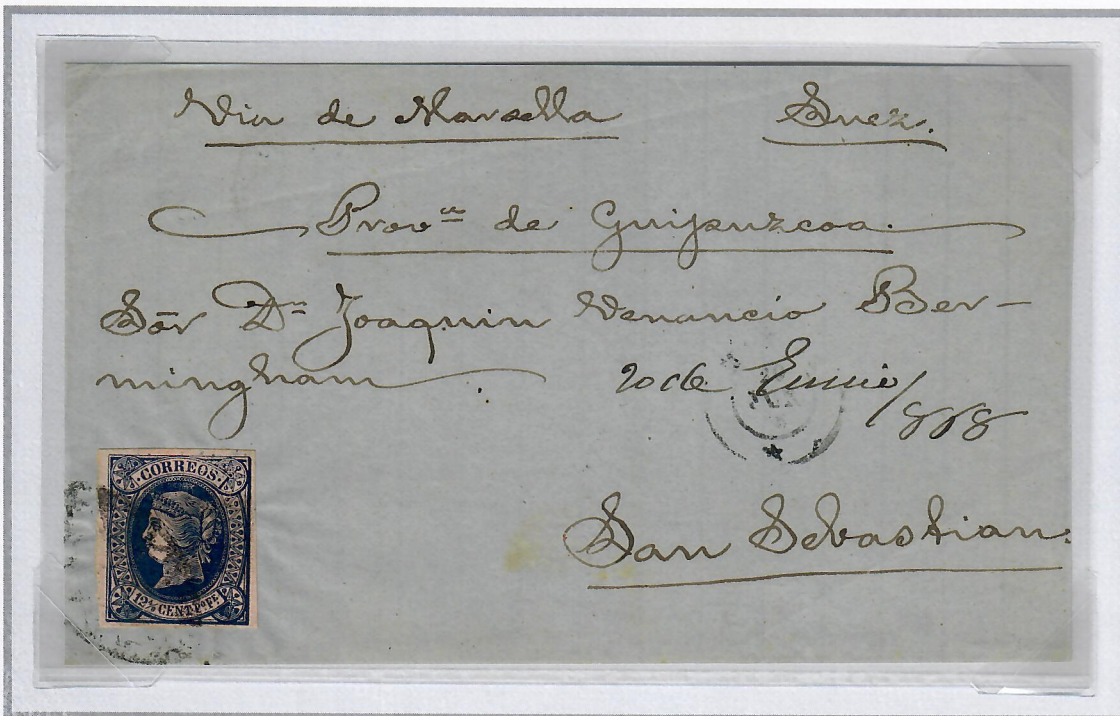 Via de Marsella Suez.
Provᵃ de Guipuzcoa.
Sōr Dⁿ Joaquin Venancio Ber-
mingham
20 de
San Sebastian.
CORREOS
12⅘ CENT Pº Fᵉ